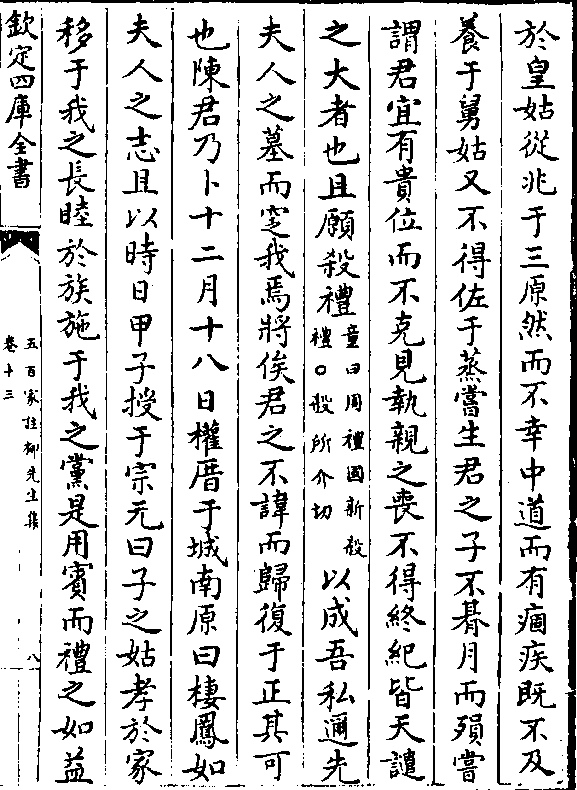 於皇姑從兆于三原然而不幸中道而有痼疾既不及
養于舅姑又不得佐于蒸嘗生君之子不朞月而殞嘗
謂君宜有貴位而不克見執親之喪不得終紀皆天譴
之大者也且願殺禮童曰周禮國新殺禮○殺所介切以成吾私邇先
夫人之墓而窆我焉將俟君之不諱而歸復于正其可
也陳君乃卜十二月十八日權厝于城南原曰棲鳳如
夫人之志且以時日甲子授于宗元曰子之姑孝於家
移于我之長睦於族施于我之黨是用賓而禮之如益
欽定四庫全書
五百家註柳先生集
卷十三
八